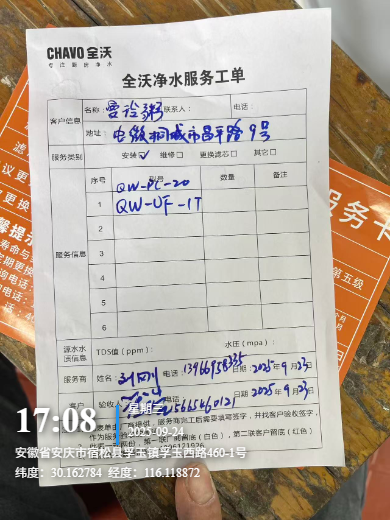 CHAVO 全沃
专注厨房净水
全沃净水服务工单
客户信息
名称: 联系人: 电话:
地址: 安徽桐城市昌平路9号
服务类别 安装☑ 维修□ 更换滤芯□ 其它□
序号 型号 数量 备注
服务信息
QW-PC-20
1 QW-UF-1T
2
3
4
5
6
源水水质信息 TDS值(ppm): 水压(mpa):
服务商 姓名: 刘刚 电话: 13966958335 日期: 2025年9月23日
客户 验收 电话 日期 2025年9月23日
服务商完工后需要填写签字,并找客户验收签字,
第一联厂商留底(白色),第二联客户留底(红色)
服务卡
第五级
17:08
星期三
2025-09-24
安徽省安庆市宿松县孚玉镇孚玉西路460-1号
纬度: 30.162784 经度: 116.118872